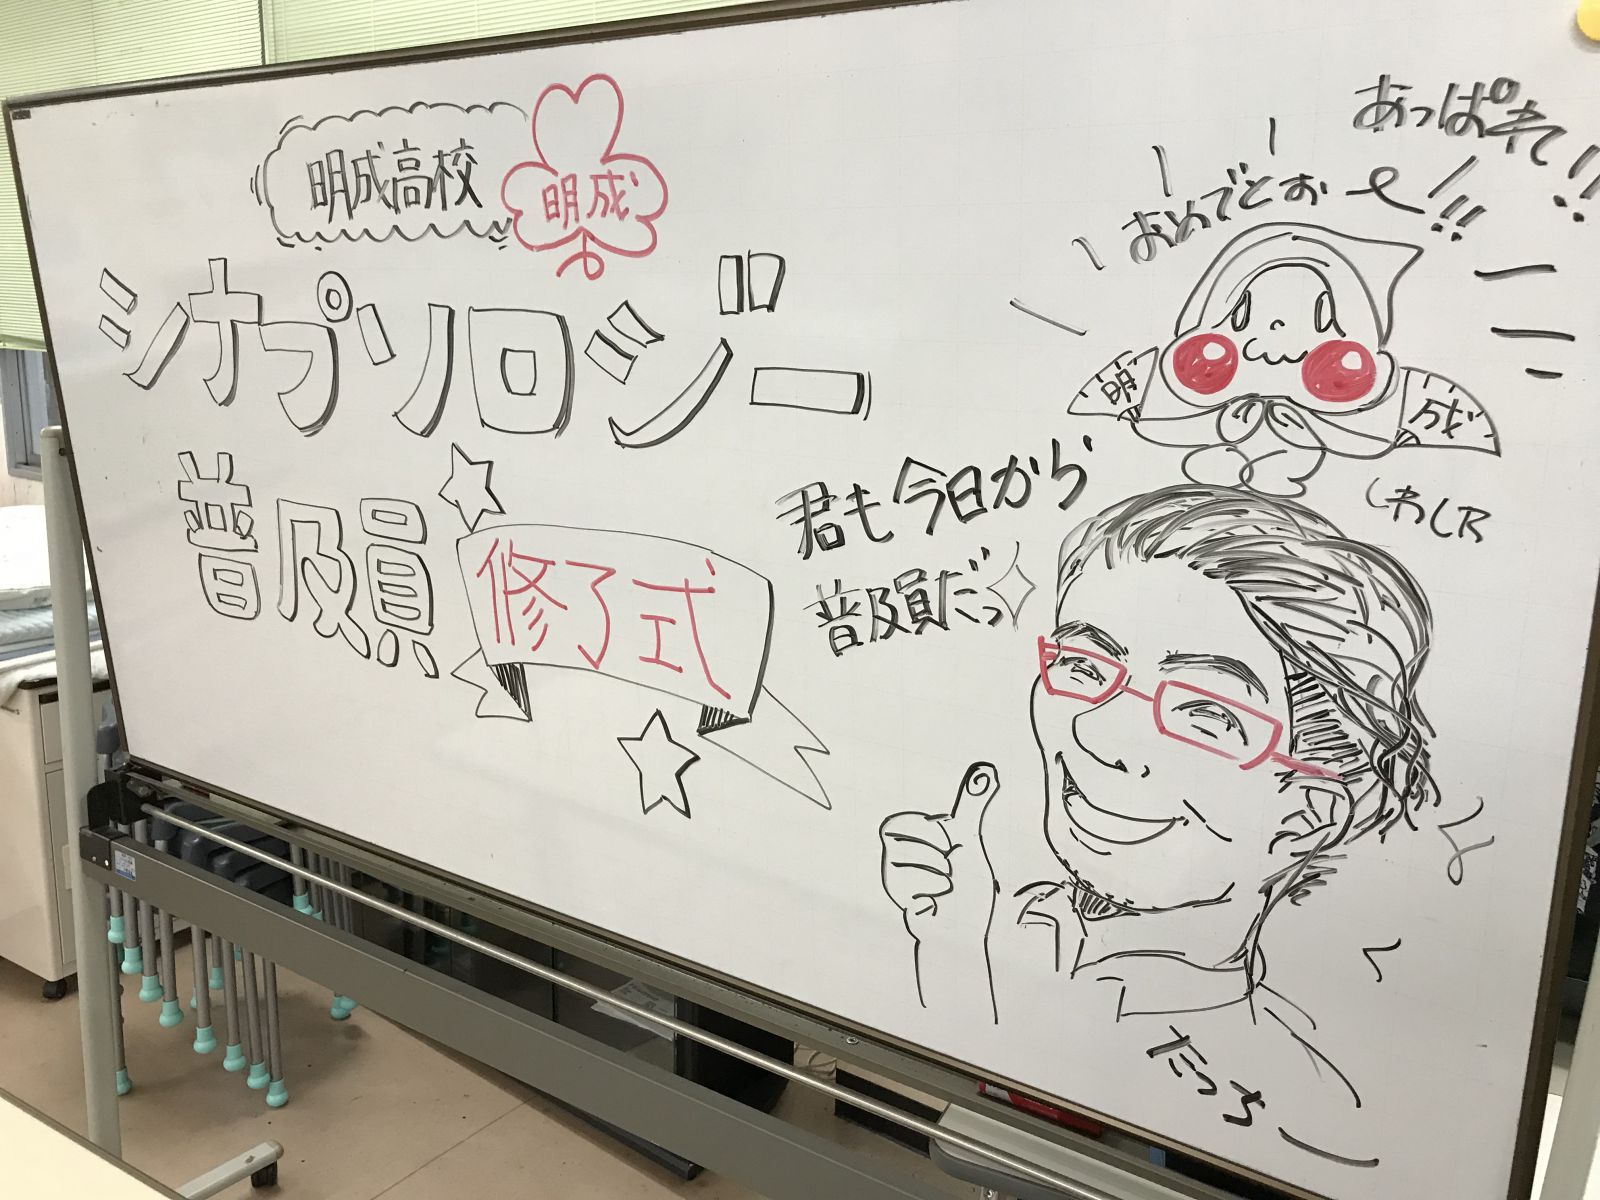 明成高校
明成
シナプソロジー
普及員
修了式
あっぱれ!!
おめでとぉ〜!!
明
成
君も今日から
普及員だっ
たっちー